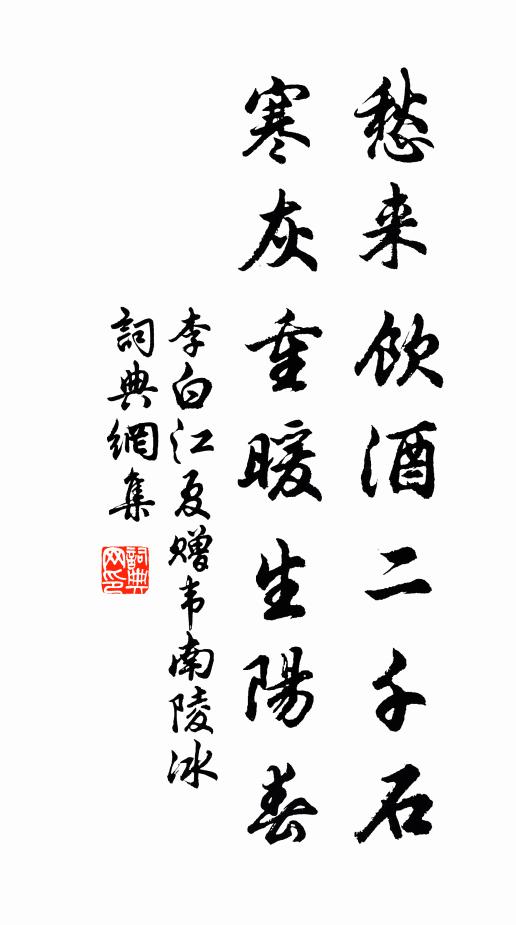 愁来飲酒二千石
寒灰重暖生陽春
李白江夏贈韦南陵冰
詞典網集
詞典
网印